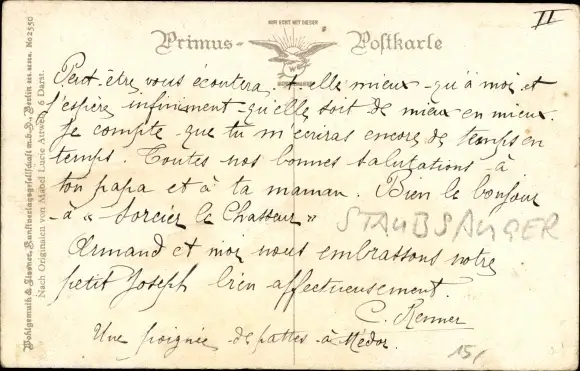 II
NUR ECHT MIT DIESEM
Primus-Postkarte
W
Peut-être vous écoutera-t-elle mieux qu'à moi et
j'espère infiniment qu'elle soit de mieux en mieux.
Je compte que tu m'écriras encore de temps en
temps. Toutes nos bonnes salutations à
ton papa et à ta maman. Bien le bonjour
à « Sorcier le Chasseur »
STAUBSAUGER
Armand et moi nous embrassons notre
petit Joseph bien affectueusement.
C. Renner
Une poignée de pattes à Médor.
15,
Wohlgemuth & Lissner, Kunstverlagsgesellschaft m.b.H., Berlin No 2550
Nach Originalen von Mabel Lucie Attwell, 6 Darst.